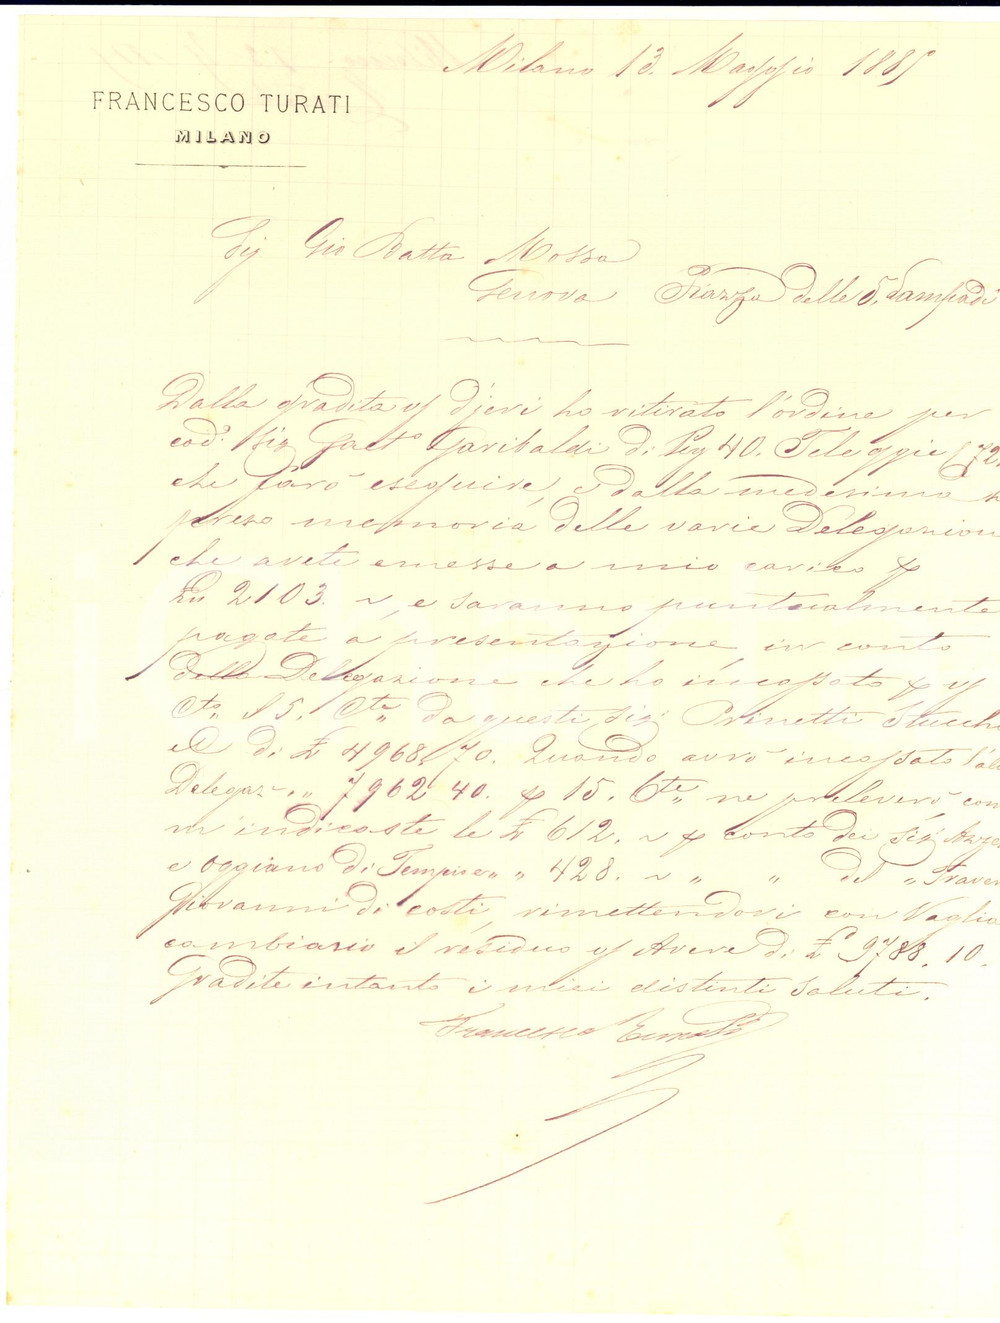 Milano 13. Maggio 1885
FRANCESCO TURATI
MILANO
Sig Gio Batta Mossa
Genova Piazza delle 5. Lampadi
Dalla gradita d'jeri ho ritirato l'ordine per
cod.° Sig Gaet° Garibaldi di 40. Teleggie
che farò eseguire, e dalla medesima
preso memoria delle varie Delegazion
che avete emesse a mio carico
2103. ~, e saranno puntualmente
pagate a presentazione in conto
della Delegazione che ho incassato
Cto, 15. Cte, da questi Sig. Prinetti Stucchi
di £ 4968.70. Quando avrò incassato l'al
Delegaz. „ 7962 40. 15. Cte, ne preleverò com
m'indicaste le £ 612. ~ conto dei Sig.
e Oggiano di Tempio „ „ 428. ~ „ „ del „ Traver
Giovanni di costì, rimettendovi con Vaglia
cambiario il residuo Avere di £ 9788. 10.
Gradite intanto i miei distinti saluti.
Francesco Turati